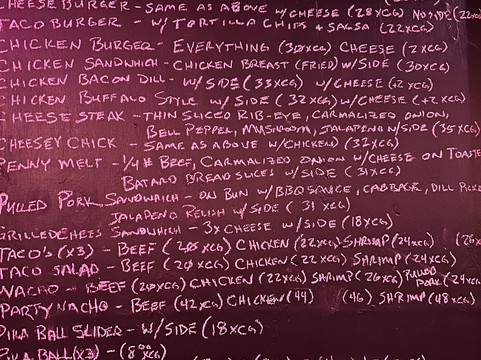 CHEESE BURGER - SAME AS ABOVE W/CHEESE (28XCG) NO SIDE (22XCG
TACO BURGER - W/ TORTILLA CHIPS & SALSA (22XCG)
CHICKEN BURGER - EVERYTHING (30XCG) CHEESE (2XCG)
CHICKEN SANDWHICH - CHICKEN BREAST (FRIED) W/SIDE (30XCG)
CHICKEN BACON DILL - W/SIDE (33XCG) W/CHEESE (+2 XCG)
CHICKEN BUFFALO STYLE W/ SIDE (32XCG) W/CHEESE (+2XCG)
CHEESE STEAK - THIN SLICED RIB-EYE, CARMALIZED ONION,
BELL PEPPER, MUSHROOM, JALAPENO W/SIDE (35XCG)
CHEESEY CHICK - SAME AS ABOVE W/CHICKEN) (32XCG)
PENNY MELT - 1/4# BEEF, CARMALIZED ONION W/CHEESE ON TOASTE
BATARD BREAD SLICES W/ SIDE (31XCG)
PULLED PORK SANDWHICH - ON BUN W/BBQ SAUCE, CABBAGE, DILL PICKL
JALAPENO RELISH W/SIDE (31 XCG)
GRILLED CHEES SANDWHICH - 3X CHEESE W/SIDE (18XCG)
TACO'S (X3) - BEEF (20XCG) CHICKEN (22XCG) SHRIMP (24XCG) (26X
TACO SALAD - BEEF (20XCG) CHICKEN (22XCG) SHRIMP (24XCG)
NACHO - BEEF (20XCG) CHICKEN (22XCG) SHRIMP (26XCG) PULLED PORK (24XCG
PARTY NACHO - BEEF (42XCG) CHICKEN (44) (46) SHRIMP (48XCG)
PIKA BALL SLIDER - W/SIDE (18XCG)
PIKA BALL (X3) - (8 XCG)